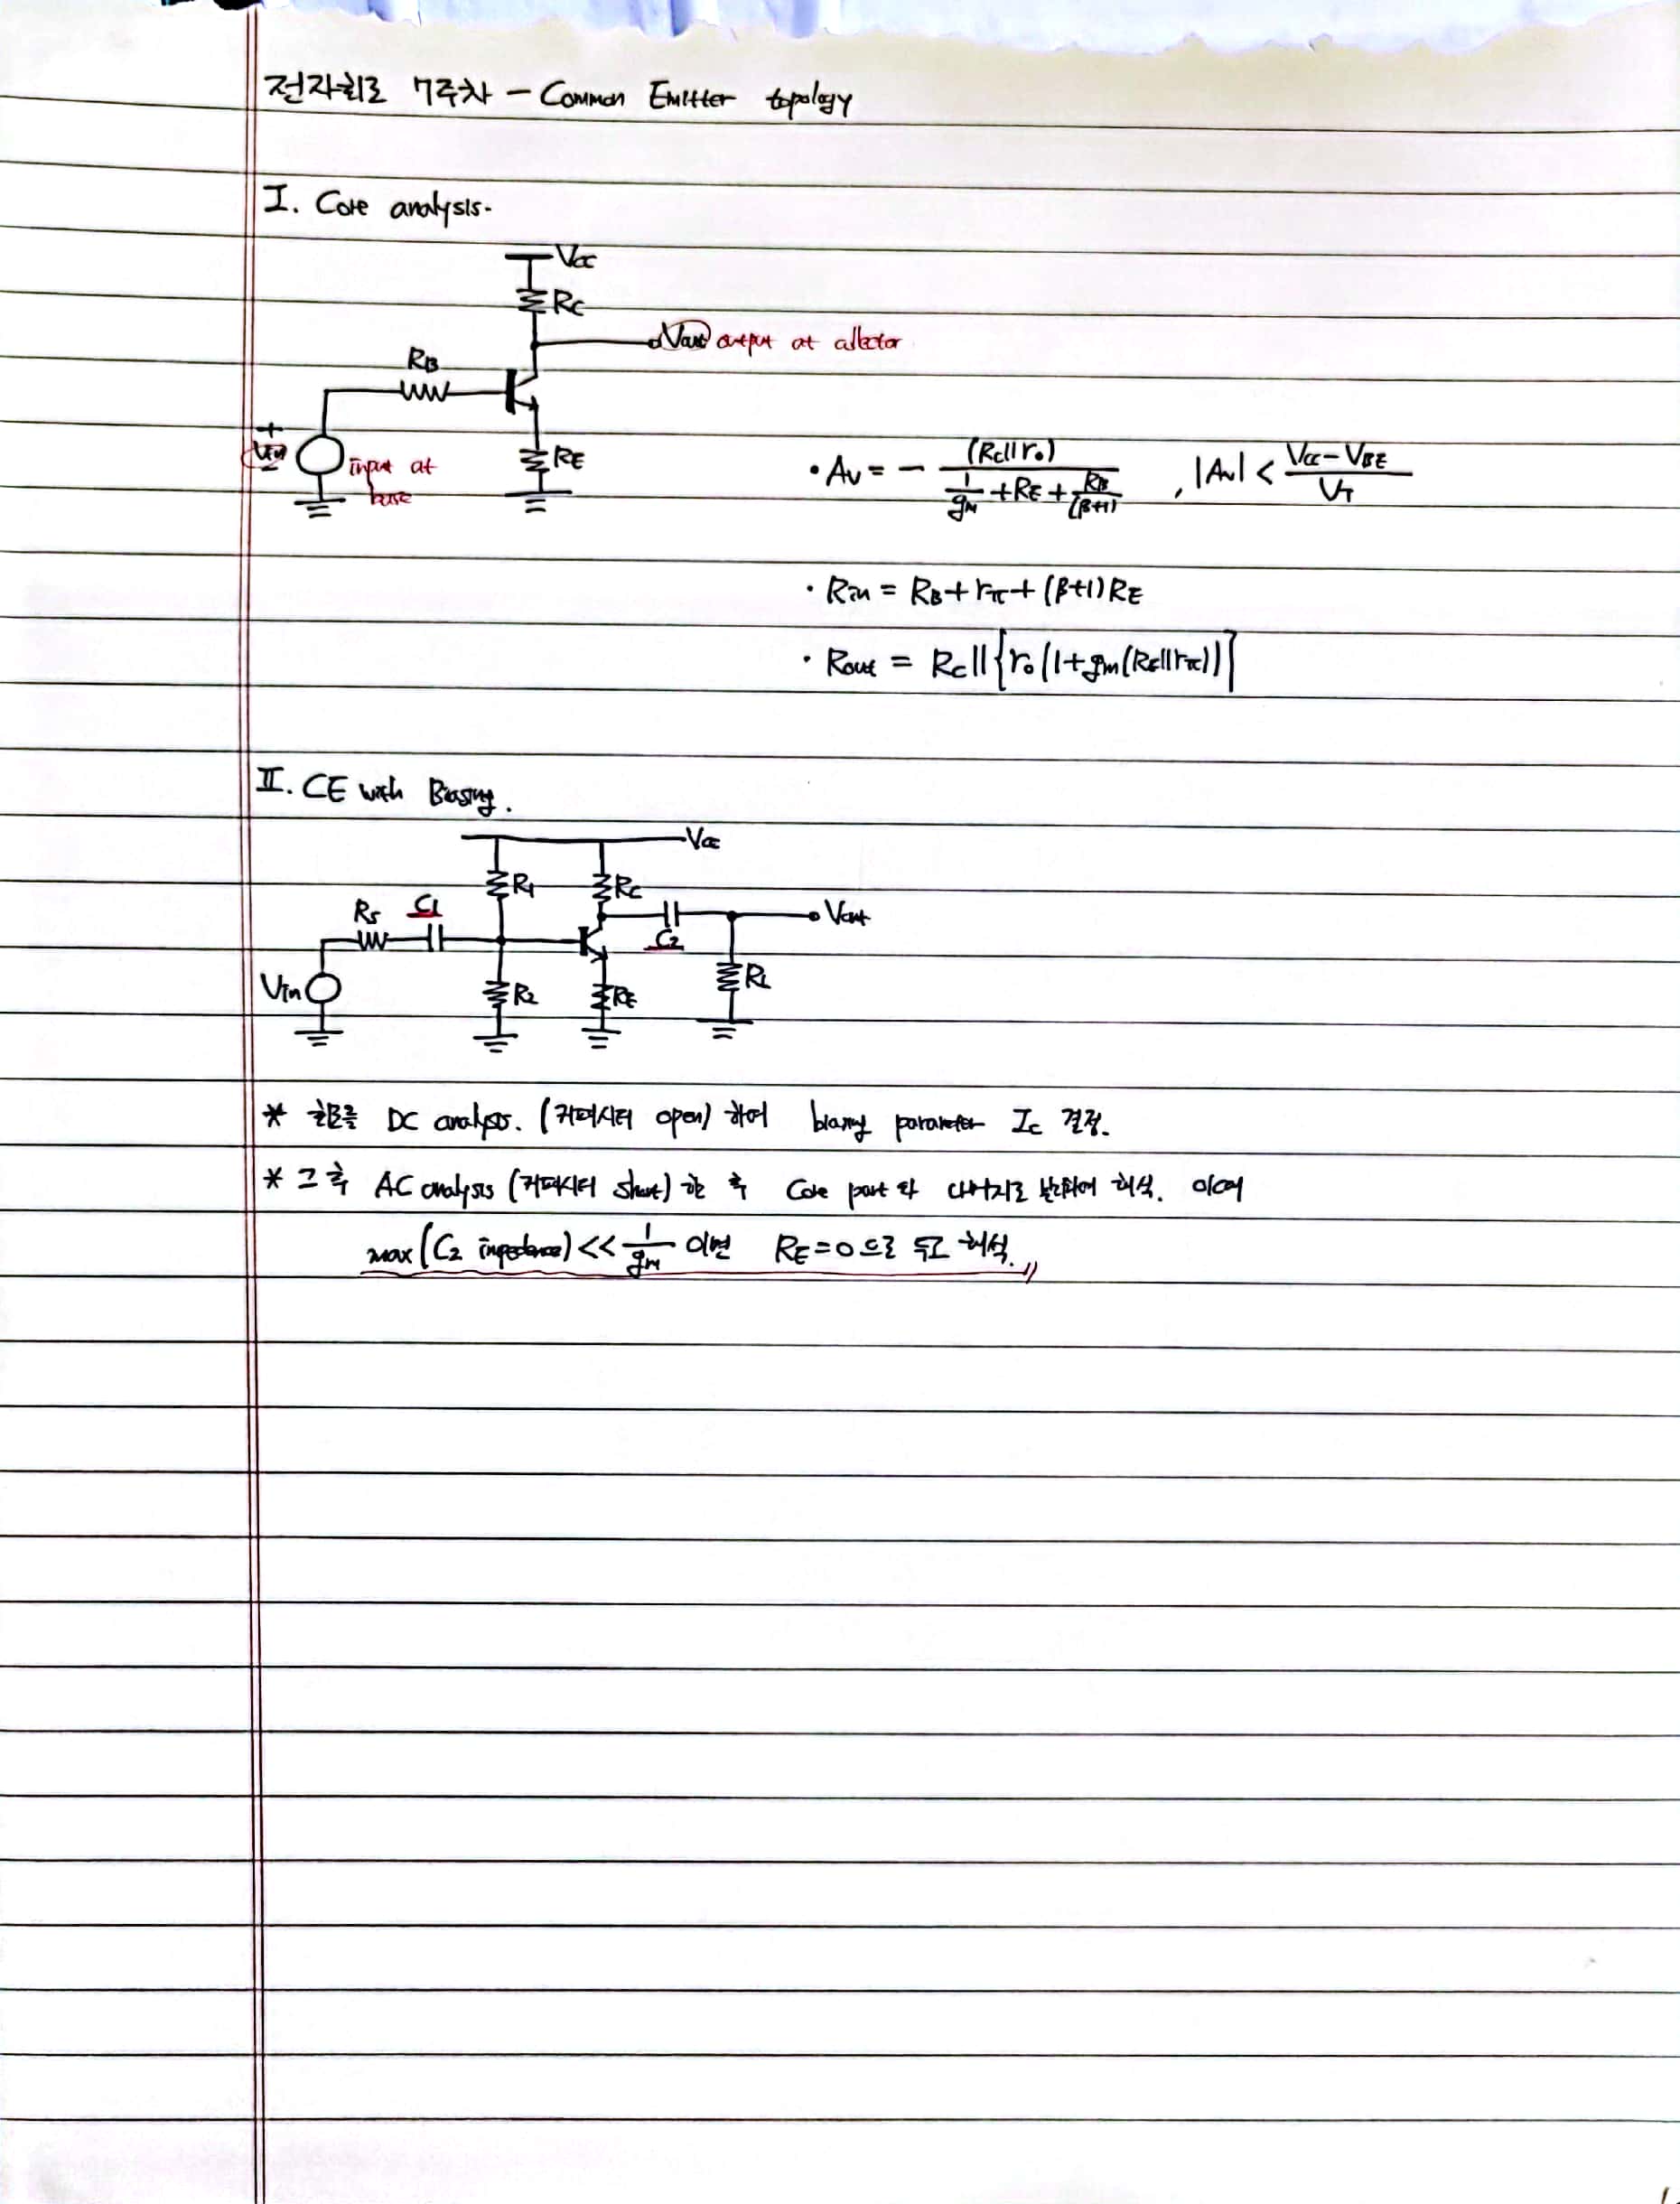 전자회로 7주차 - Common Emitter topology
I. Core analysis.
Vcc
Rc
Vout output at collector
RB
+
Vin
-
input at base
RE
· Av = - (Rc||ro) / (1/gm + RE + RB/(β+1)) , |Av| < (Vcc - VBE) / VT
· Rin = RB + rπ + (β+1)RE
· Rout = Rc || {ro(1+gm(RE||rπ))}
II. CE with Biasing.
Vcc
R1 Rc
Rs C1 Vout
C2
Vin R2 RE RL
* 회로를 DC analysis. (커패시터 open) 하여 biasing parameter Ic 결정.
* 그 후 AC analysis (커패시터 short) 한 후 Core part 와 나머지로 분리하여 해석. 이때
max(C2 impedance) << 1/gm 이면 RE=0 으로 두고 해석.